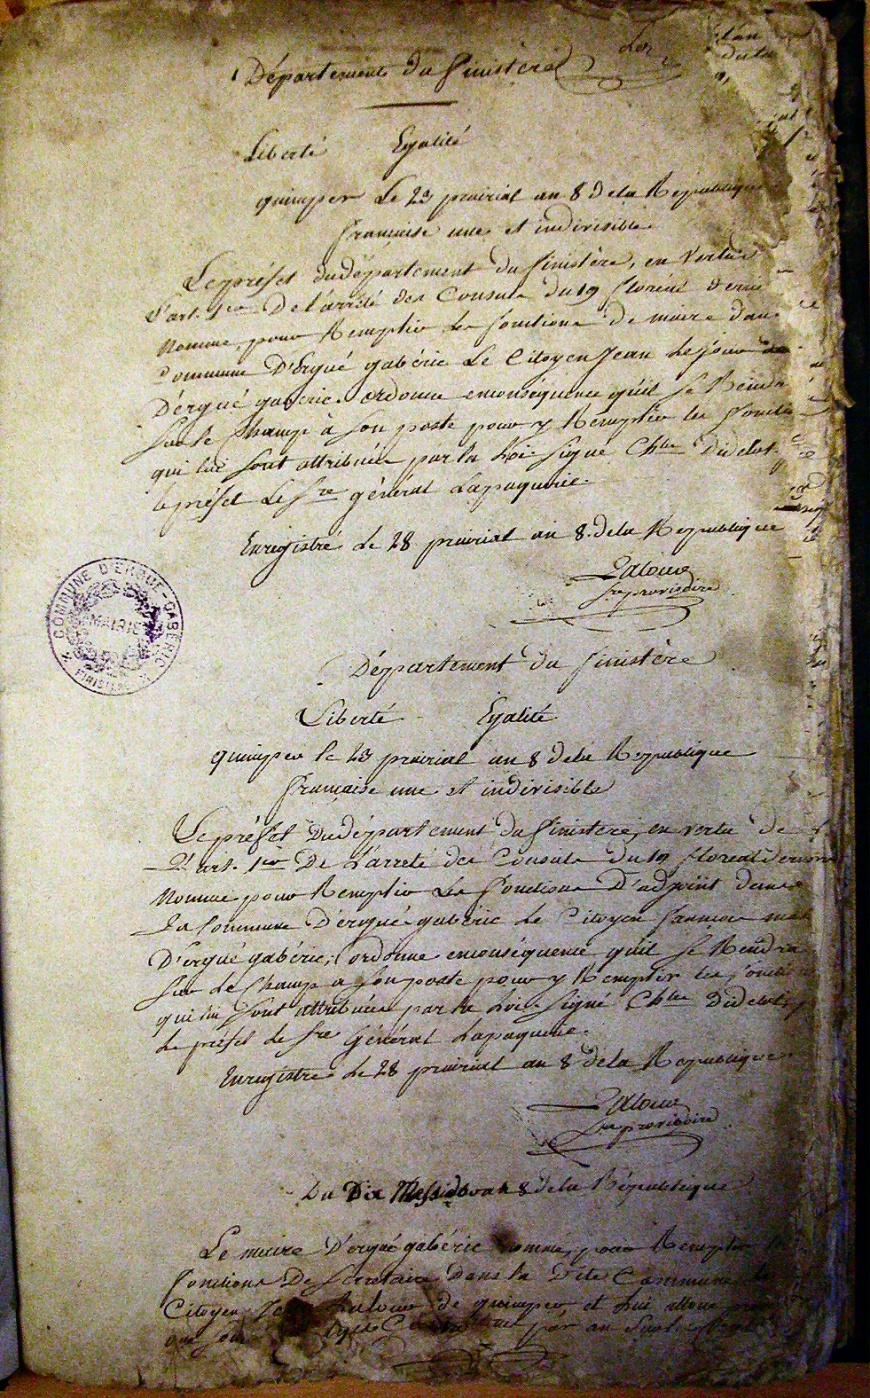 Département du finistère
Liberté Egalité
quimper Le 23 prairial an 8 dela Republique
française une et indivisible
Le préfet dudépartement du finistère, en vertu
l'art. 1er De l'arrêté des Consuls du 19 floréal dernier
Nomme, pour Remplir les fonctions de maire dans
commune D'Ergué gabéric Le Citoyen Jean Le jour
D'ergué gabéric. ordonne enconséquence qu'il se Rendra
sur le champ à son poste pour y Remplir les fonctions
qui lui sont attribuées par la loi. signé Ch. Didelot.
le préfet Le sre général Lapaquerie.
Enregistré le 28 prairial an 8. dela Republique
Salour
sre provisoire
COMMUNE D'ERGUE-GABERIC
MAIRIE
FINISTERE
Département du finistère
Liberté Egalité
quimper le 23 prairial an 8 dela Republique
française une et indivisible
Le préfet Dudépartement du finistere, en vertu de
L'art. 1er De L'arreté des Consuls du 19 floreal dernier
Nomme pour Remplir Les fonctions D'adjoint dans
La Commune D'ergué gabéric Le Citoyen
D'ergué gabéric, ordonne enconséquence qu'il se Rendra
sur le champ a son poste pour y Remplir les fonctions
qui lui sont attribuées par la loi. signé Ch. Didelot,
Le préfet Le sre Général Lapaquerie.
Enregistre le 28 prairial an 8 dela Republique
Salour
sre provisoire
Du Dix Messidor an 8 dela République
Le maire D'ergué gabéric nomme, pour Remplir
fonctions De Secretaire Dans la Dite Commune
Citoyen de quimper et lui alloue
par an